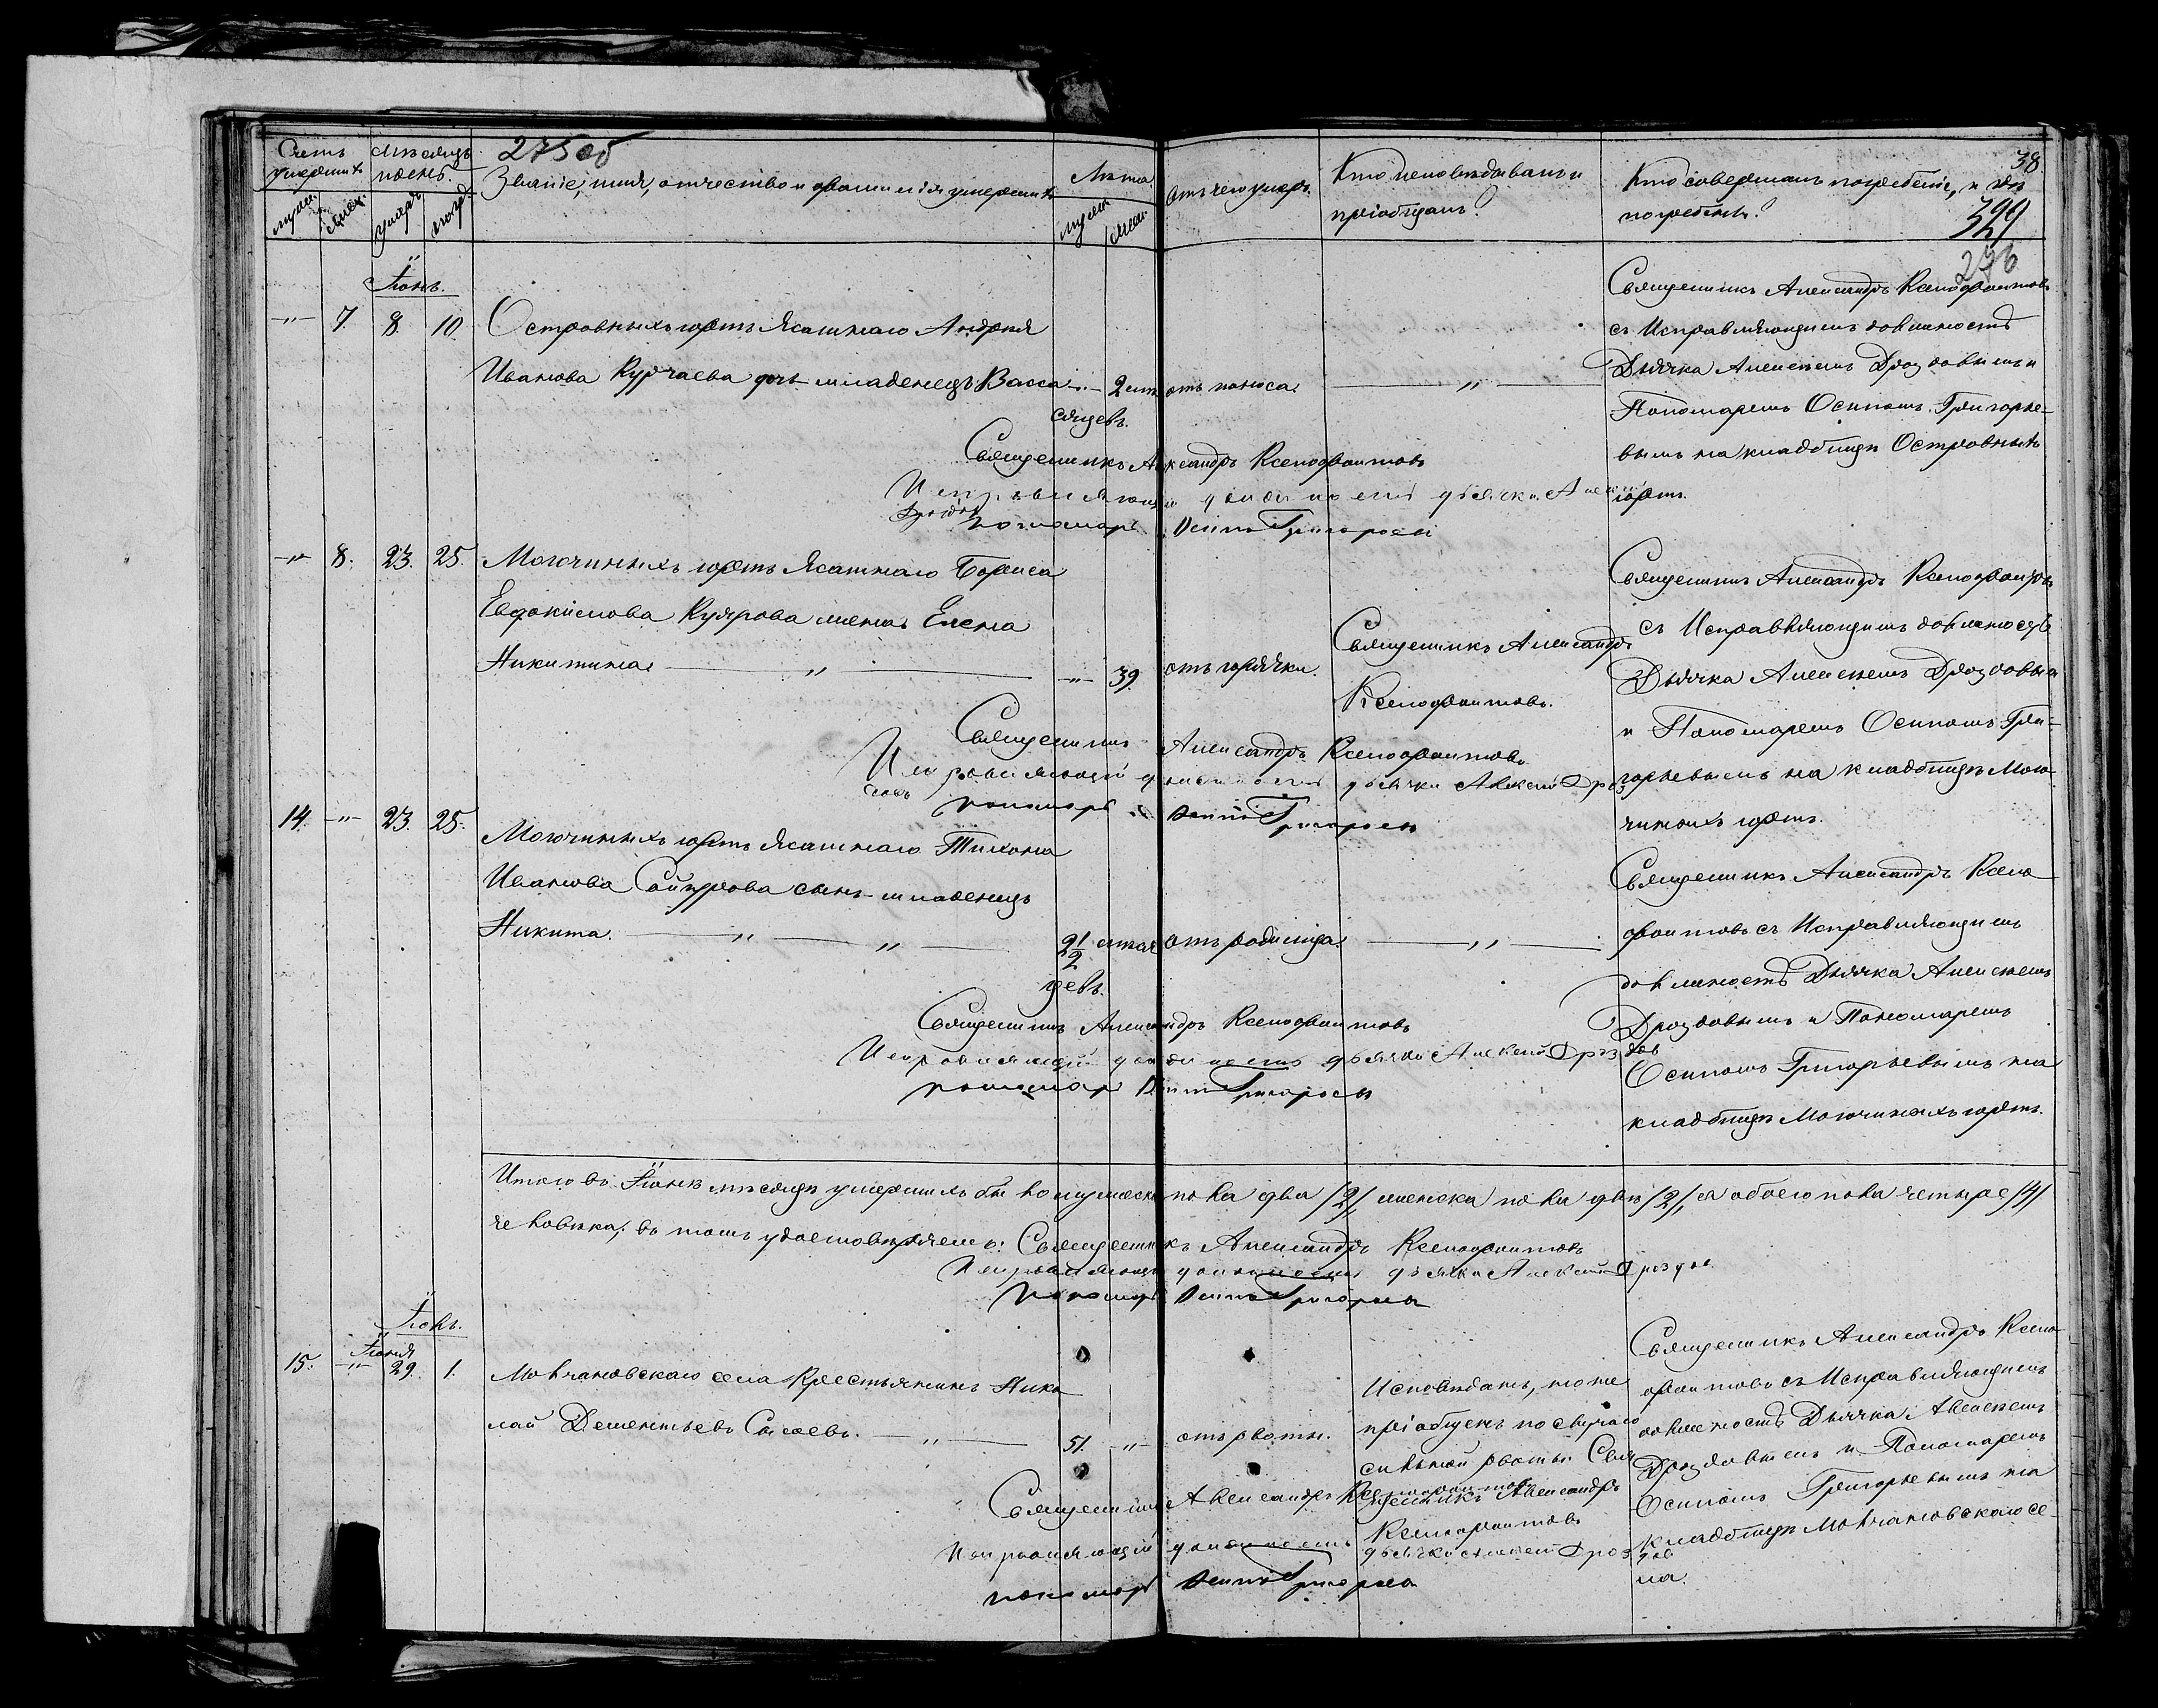 275об
38
399
276
Счетъ умершихъ
Мѣсяцъ и день.
Званіе, имя, отчество и фамилія умершихъ
Лѣта
отъ чего умеръ.
Кто исповѣдывалъ и
пріобщалъ?
Кто совершалъ погребеніе, и гдѣ
погребенъ?
муж.
жен.
умер.
погр.
муж.
жен.
Іюнь.
-"- 7. 8. 10. Островныхъ юртъ Ясашнаго Андрея
Иванова Курчаева дочь младенецъ Васса -"- 2 мѣ отъ поноса. "
сяцевъ.
Священникъ Александръ Ксенофонтовъ
съ Исправляющимъ должность
Дьячка Алексѣемъ Дроздовымъ и
Пономаремъ Осипомъ Григорье-
вымъ на кладбищѣ Островныхъ
юртъ.
Священникъ Александръ Ксенофонтовъ
Исправляющій должность дьячка Алексѣй
Дроздов
пономарь Осипъ Григорьевъ
-"- 8. 23. 25. Могочиныхъ юртъ Ясашнаго Бориса
Евдокимова Куярова жена Елена
Никитина. " -"- 39. отъ горячки.
Священникъ Александръ
Ксенофонтовъ.
Священникъ Александръ Ксенофонтовъ
съ Исправляющимъ должность
Дьячка Алексѣемъ Дроздовым
и Пономаремъ Осипомъ Гри-
горьевымъ на кладбищѣ Мого-
чиныхъ юртъ.
Священникъ Александръ Ксенофонтовъ
Исправляющій должность дьячка Алексѣй Дроз
довъ
пономарь Осипъ Григорьевъ
14. -"- 23. 25. Могочиныхъ юртъ Ясашнаго Тихона
Иванова сынъ младенецъ
Никита. " " 2 1/2 мѣся отъ родимца. "
цевъ.
Священникъ Александръ Ксено
фонтовъ съ Исправляющимъ
должность Дьячка Алексѣемъ
Дроздовымъ и Пономаремъ
Осипомъ Григорьевымъ на
кладбищѣ Могочиныхъ юртъ.
Священникъ Александръ Ксенофонтовъ
Исправляющій должность дьячка Алексѣй Дроз
дов
пономарь Осипъ Григорьевъ
Итого въ Іюнѣ мѣсяцѣ умершихъ было мужеска пола два /2/, женска пола двѣ /2/, а обоего пола четыре /4/
человѣка; въ томъ удостовѣряемъ: Священникъ Александръ Ксенофонтовъ
Исправляющій должность дьячка Алексѣй Дроздов
Пономарь Осипъ Григорьевъ
Іюль.
Іюня
15. -"- 29. 1. Молчановскаго села Крестьянинъ Нико
лай Дементьевъ Сысоевъ. " 51. -"- отъ рвоты.
Исповѣданъ, но не
пріобщенъ по случаю
сильной рвоты Свя
щенникъ Александръ
Ксенофонтовъ
Священникъ Александръ Ксено-
фонтовъ съ Исправляющимъ
должность Дьячка Алексѣемъ
Дроздовымъ и Пономаремъ
Осипомъ Григорьевымъ на
кладбищѣ Молчановскаго се-
ла.
Священникъ Александръ Ксенофонтовъ
Исправляющій должность дьячка Алексѣй Дроз
дов
пономарь Осипъ Григорьевъ